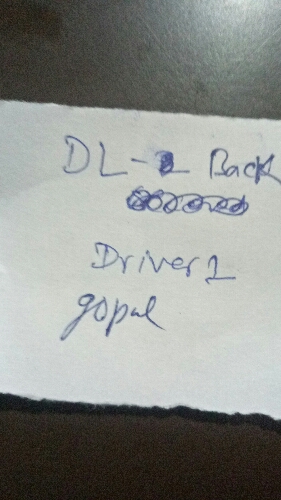 DL-2 Back
Driver 1
gopal